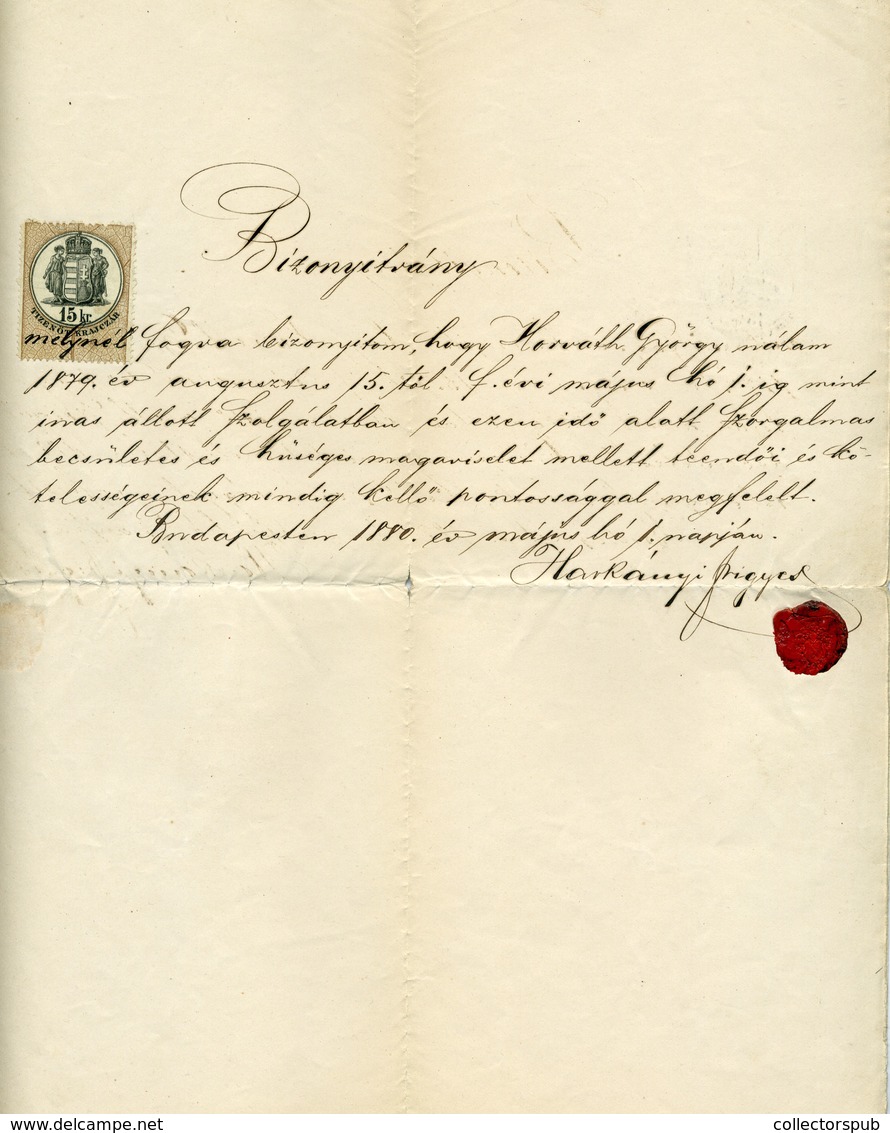 Bizonyitvány
15 kr.
TIZENÖT KRAJCZÁR
melynél fogva bizonyitom, hogy Horváth György nálam
1879. év augusztus 15. től f. évi május hó 1. ig mint
inas állott szolgálatban és ezen idő alatt szorgalmas
becsületes és hűséges magaviselet mellett teendői és kö-
telességeinek mindig kellő pontossággal megfelelt.
Budapesten 1880. év május hó 1. napján.
Harkányi Frigyes
collectorspub